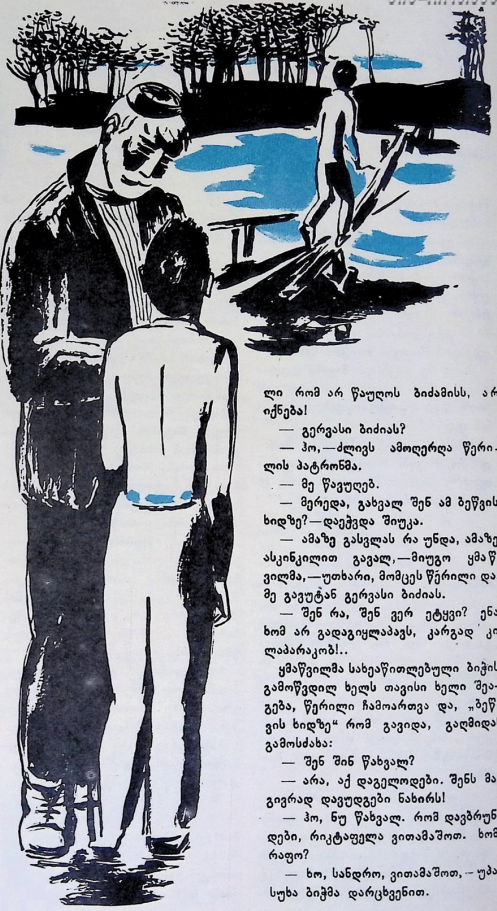 ლი რომ არ წაუღოს ბიძამისს, არ
იქნება!
— გერვასი ბიძიას?
— ჰო,—ძლივს ამოღერღა წერი-
ლის პატრონმა.
— მე წავუღებ.
— მერედა, გახვალ შენ ამ ბეწვის
ხიდზე?—დაეჭვდა შიუკა.
— ამაზე გასვლას რა უნდა, ამაზე
ასკინკილით გავალ,—მიუგო ყმაწ
ვილმა,—უთხარი, მომცეს წერილი და
მე გავუტან გერვასი ბიძიას.
— შენ რა, შენ ვერ ეტყვი? ენა
ხომ არ გადაგიყლაპავს, კარგად კი
ლაპარაკობ!..
ყმაწვილმა სახეაწითლებული ბიჭის
გამოწვდილ ხელს თავისი ხელი შეა-
გება, წერილი ჩამოართვა და, „ბეწ
ვის ხიდზე“ რომ გავიდა, გაღმიდა
გამოსძახა:
— შენ შინ წახვალ?
— არა, აქ დაგელოდები. შენს მა
გივრად დავუდგები ნახირს!
— ჰო, ნუ წახვალ. რომ დავბრუნ
დები, რიკტაფელა ვითამაშოთ. ხომ
რაფო?
— ხო, სანდრო, ვითამაშოთ,—უპა
სუხა ბიჭმა დარცხვენით.